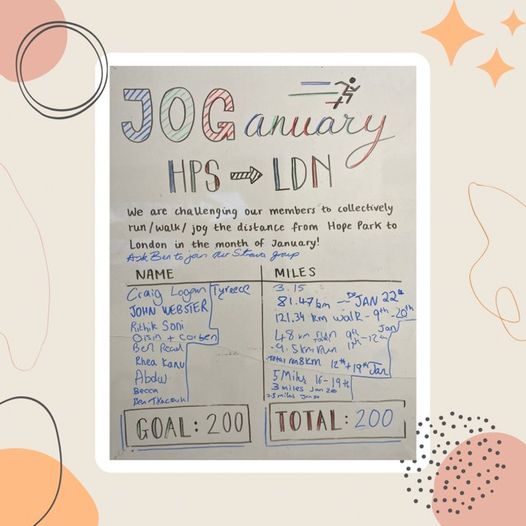 JOGanuary
HPS → LDN
We are challenging our members to collectively
run/walk/jog the distance from Hope Park to
London in the month of January!
Ask Ben to join our Strava group
NAME MILES
Craig Logan Tyreece 3.15
JOHN WEBSTER 81.47km JAN 22nd
Rithik Soni 121.34 km walk - 9th - 20th
Oisin + Corben 48 km
Ben Peach 9.5km Run 11th - 12th Jan
Rhea Kanu 12th + 19th Jan
Abdul 5 Miles 16-19th
Becca 3 miles Jan 20
Ben
GOAL: 200 TOTAL: 200